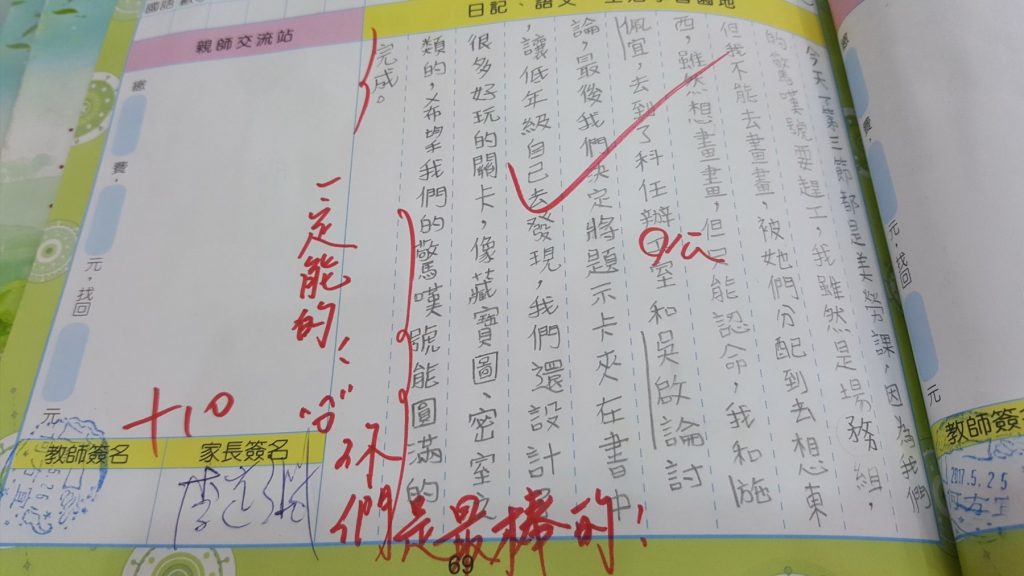 日記、語文、生活學習園地
今天第三節都是美勞課，因為我們
的驚嘆號要趕工，我雖然是場務組，
但我不能去畫畫，被她們分配到去想東
西，雖然想畫畫，但只能認命，我和施
佩宜，去到了科任辦工室和吳啟論討
公
論，最後我們決定將題示卡夾在書中
，讓低年級自己去發現，我們還設計
很多好玩的關卡，像藏寶圖、密室之
類的，希望我們的驚嘆號能圓滿的
完成。
一定能的！
你們是最棒的！
+10
親師交流站
繳
費，
元，找回
元
教師簽名
家長簽名
69
元，找回
元
教師簽名
2017.5.25